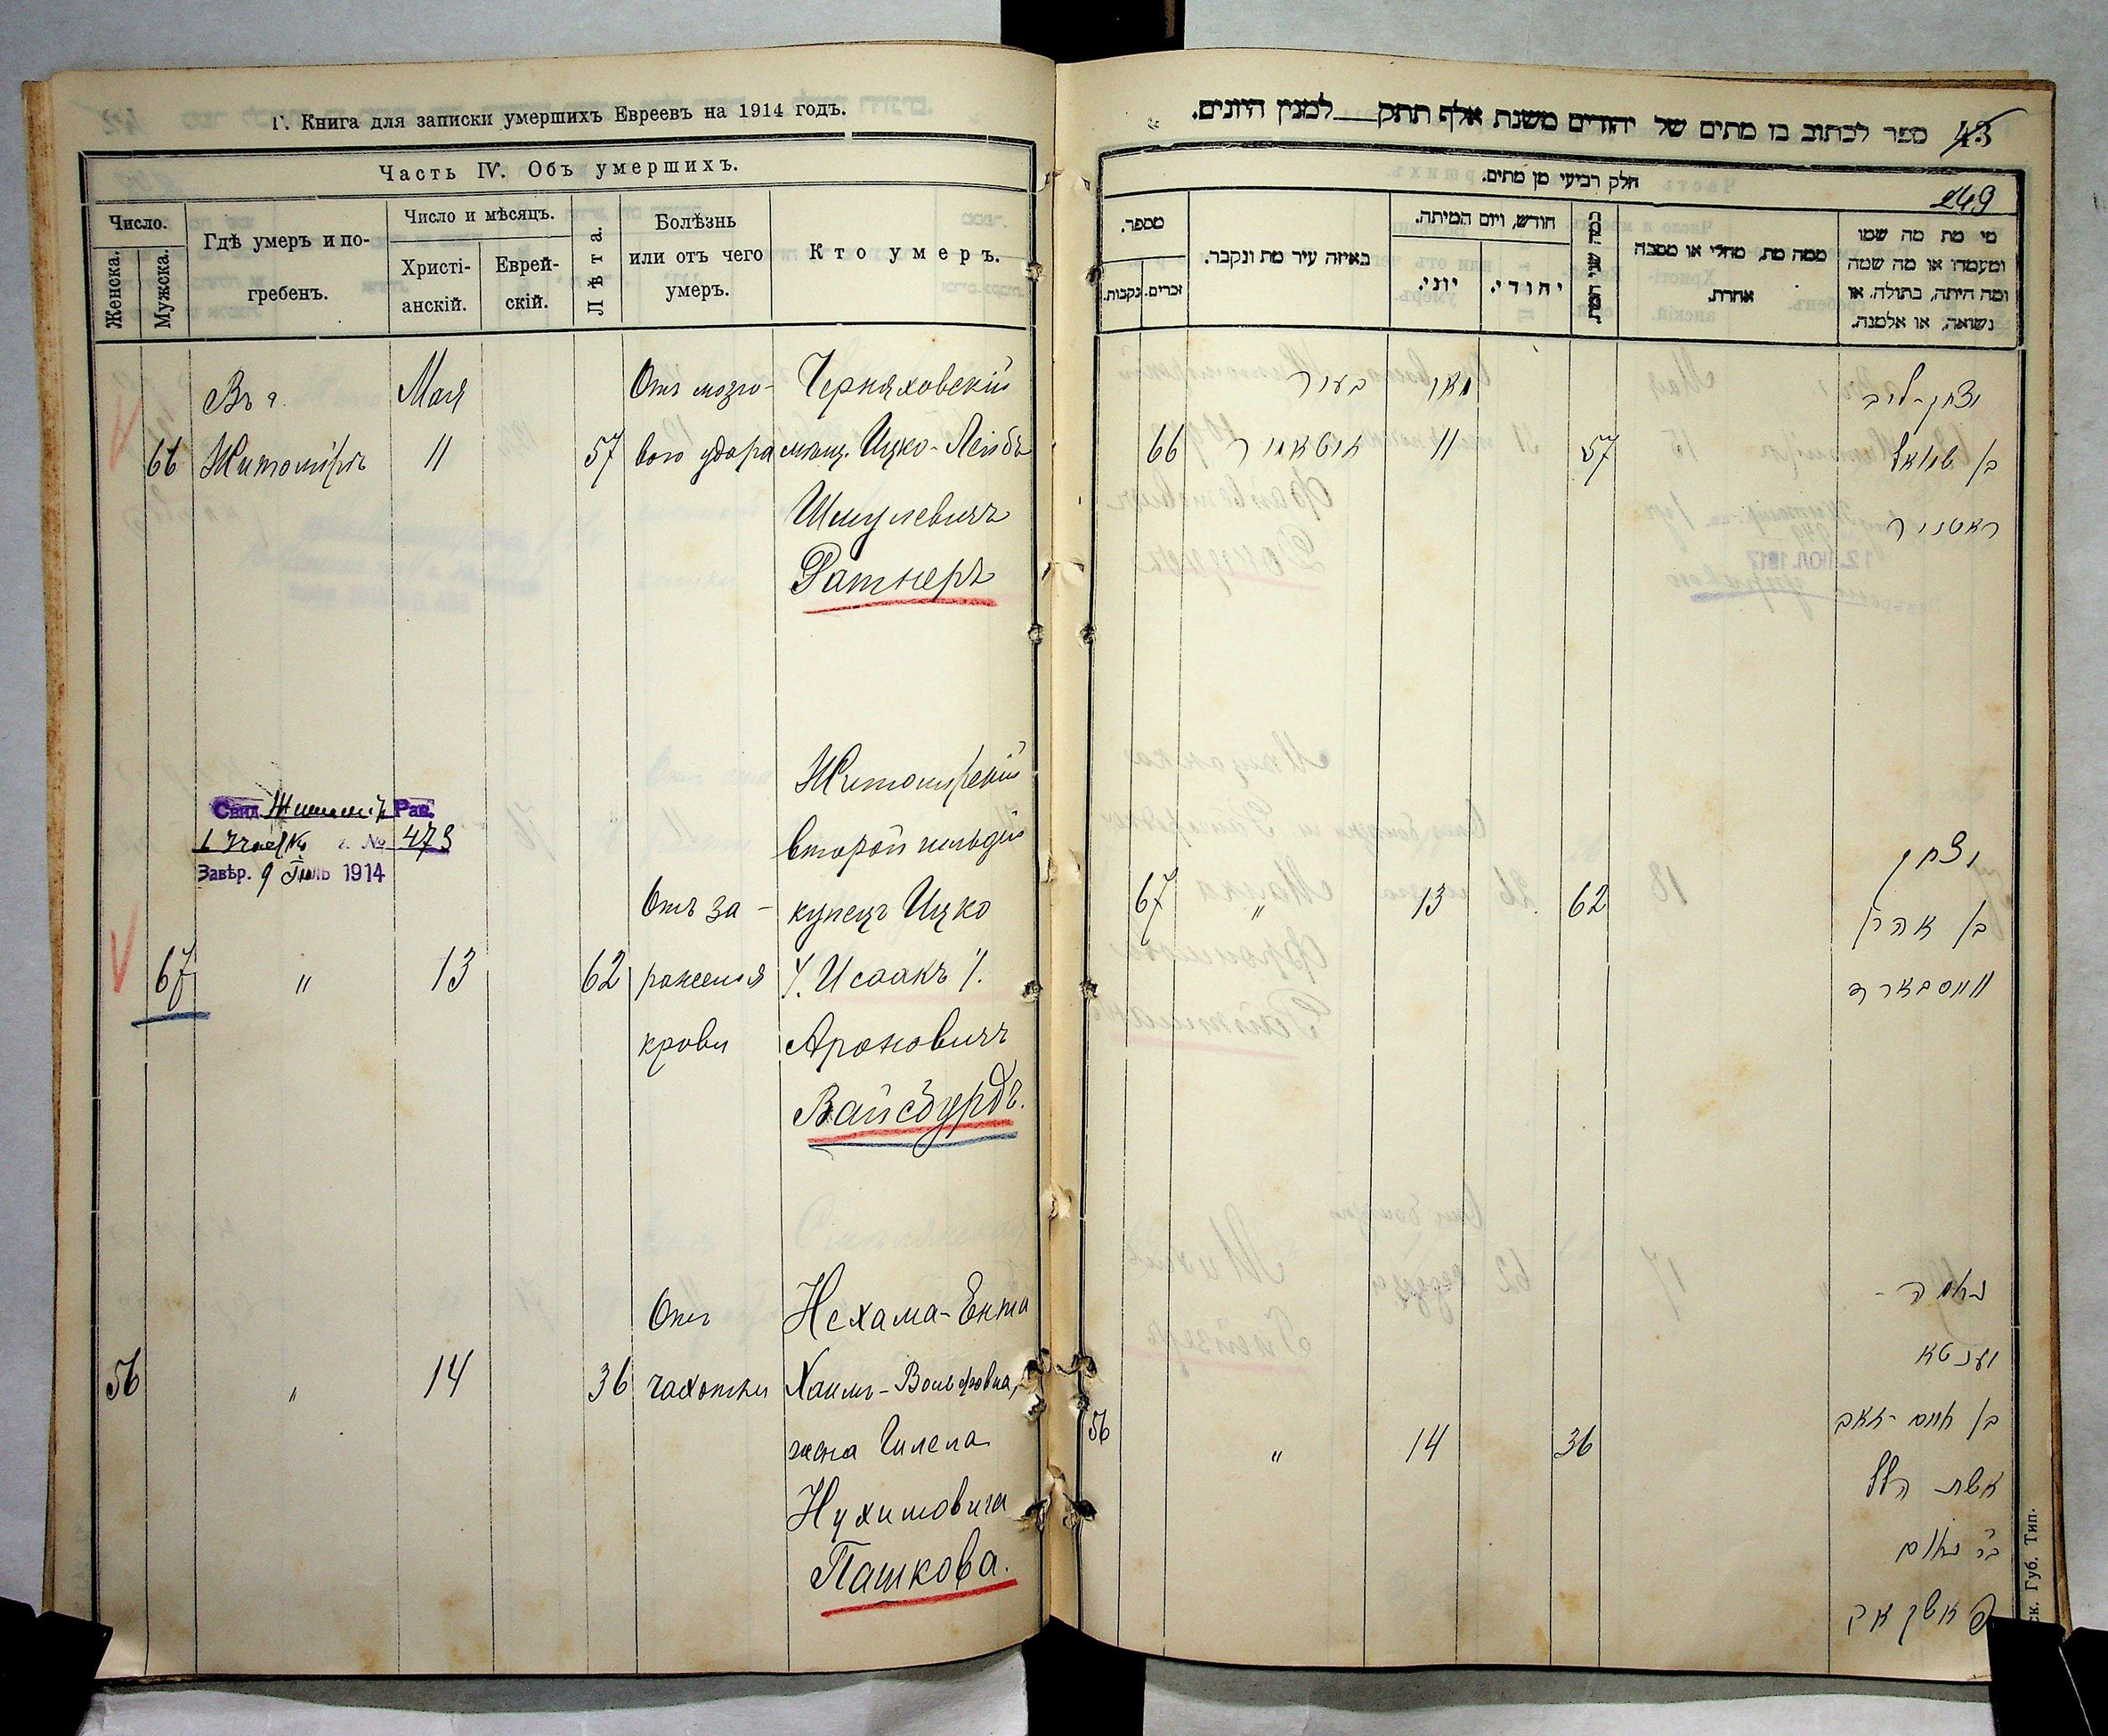 Г. Книга для записки умершихъ Евреевъ на 1914 годъ.
Часть IV. Объ умершихъ.
Число.
Женска.
Мужска.
Гдѣ умеръ и по-
гребенъ.
Число и мѣсяцъ.
Христі-
анскій.
Еврей-
скій.
Лѣта.
Болѣзнь
или отъ чего
умеръ.
Кто умеръ.
Въ г. Мая Отъ мозго- Черняховскій
66 Житомірѣ 11 57 вого удара мѣщ. Ицко-Лейбъ
Шмулевичъ
Ратнеръ
Житомірскій
Свид. Рав.
№ 473
второй гильдіи
Завѣр. 9 Іюль 1914
Отъ за- купецъ Ицко
67 " 13 62 раженія /. Исаакъ /.
крови Ароновичъ
Вайсбурдъ.
Отъ Нехама-Ента
56 " 14 36 чахотки Хаимъ-Вольфовна,
жена Гилела
Нухимовича
Пашкова.
ספר לכתוב בו מתים של יהודים משנת אלף תתק למנין היונים.
43
חלק רביעי מן מתים.
249
מספר.
נקבות.
זכרים.
באיזה עיר מת ונקבר.
חודש, ויום המיתה.
יוני.
יהודי.
ממה מת, מחלי או מסבה
אחרת.
מי מת מה שמו
ומעמדו או מה שמה
ומה היתה, בתולה, או
נשואה, או אלמנה.
בעיר מאי יצחק-ליב
66 זיטאמיר 11 57 בן שמואל
ראטניר
יצחק
67 " 13 62 בן אהרן
ווייסבארד
נחמה-
יענטא
בן חיים-זאב
56 " 14 36
אשת הלל
בר נחום
פאשקאוו
ск. Губ. Тип.